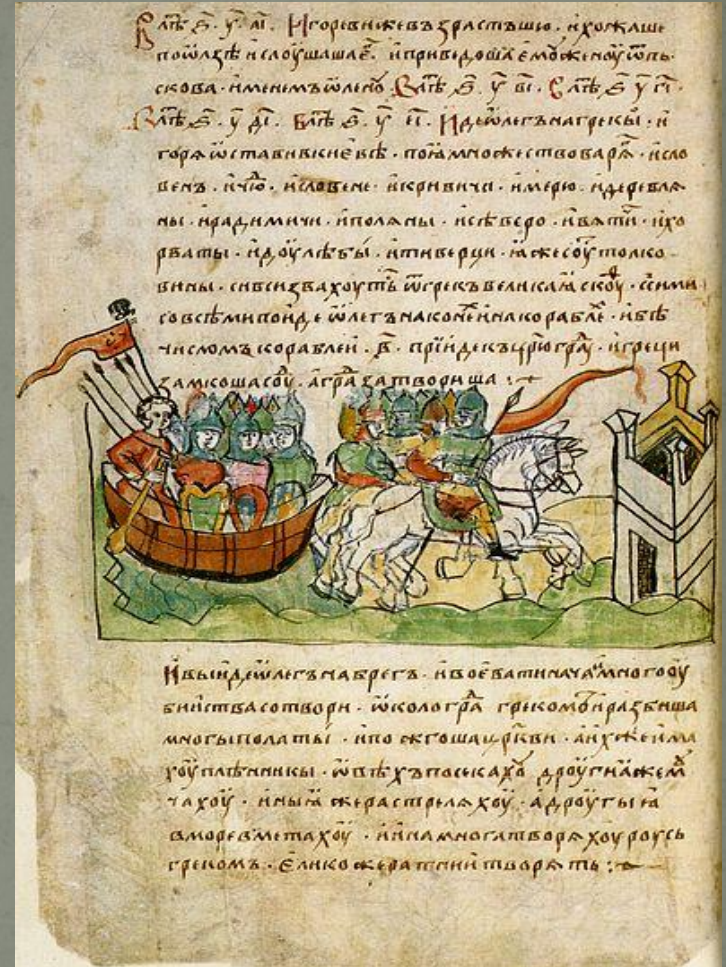 В лѣт҃ ҂s҃ . у҃ . а҃і . Игореви же взрастъшю . и хожаше
по ѡлзѣ и слоушаша е҃ . и приведоша емоу женоу ѿ пь
скова . именемъ ѡленоу . В лѣт҃ ҂s҃ . у҃ в҃і . В лѣт҃ ҂s҃ у҃ г҃і .
В лѣт҃ ҂s҃ . у҃ д҃і . В лѣт҃ ҂s҃ . у҃ е҃і . Иде ѡлегъ на грекы . и
горѧ ѡставив киевѣ . поѧ множество варѧ . и сло
венъ . и чю . и словене . и кривичи . и мерю . и деревлѧ
ны . и радимичи . и полѧны . и сѣверо . и вѧтичи . и хо
рваты . и доулѣбы . и тиверци . ꙗже соуть толко
вины . си вси звахоуть ѿ грекъ великаꙗ скоуѳ . с сими
со всѣми поиде ѡлегъ на конех и на кораблех . и бѣ
числомъ кораблеи . в҃ . прїиде къ цр҃югра . и греци
замкоша соу . а гра затвориша :~
И выиде ѡлегъ на брегъ . и воевати нача . и много оу
биства сотвори . ѡколо гра грекомъ . и разбиша
многы полаты . и пожгоша церкви . а их же има
хоу плѣнникы . ѡвѣхъ посекахоу другиа же м
чахоу . иныѧ же растрелѧхоу . а дроугыѧ
в море вметахоу . и ина многа творѧхоу роусь
грекомъ . елико же ратнии творѧть :~